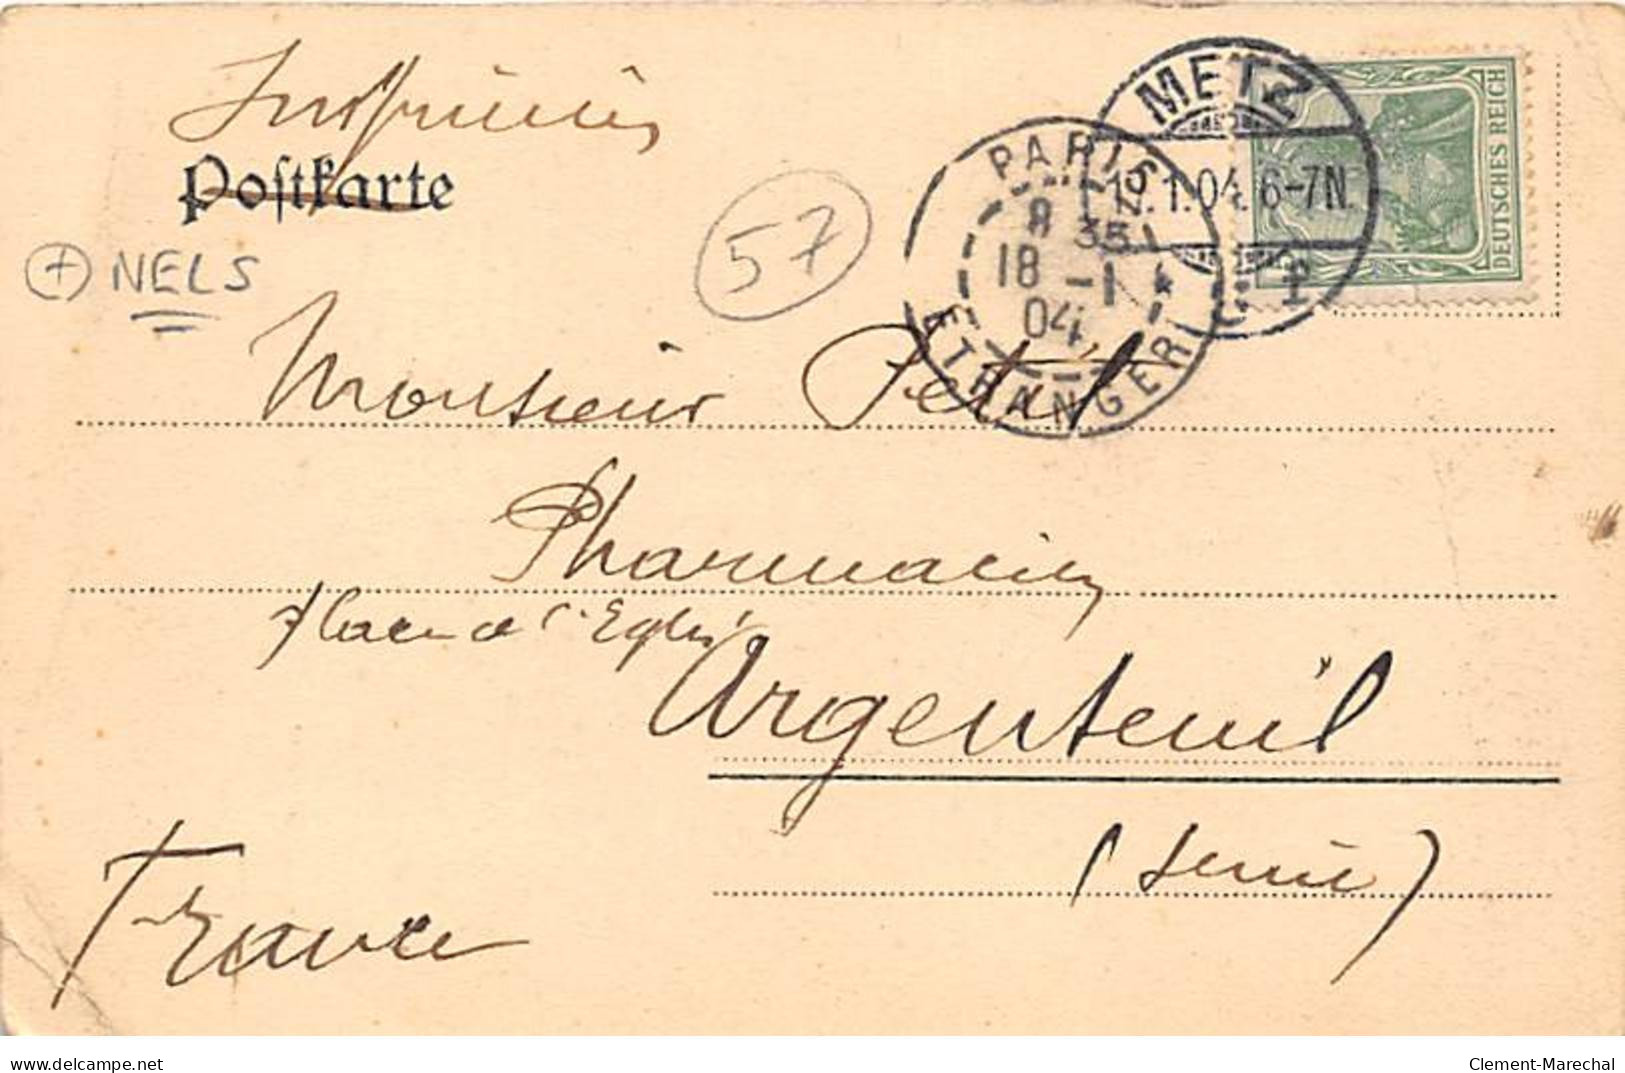 Imprimés
Postkarte
METZ
17.1.04. 6-7N.
1
DEUTSCHES REICH
PARIS
8 35
18 -1
04
ETRANGER
57
+ NELS
Monsieur
Pharmacien
Place de l'Eglise
Argenteuil
(Seine)
France
delcampe.net
Clement-Marechal